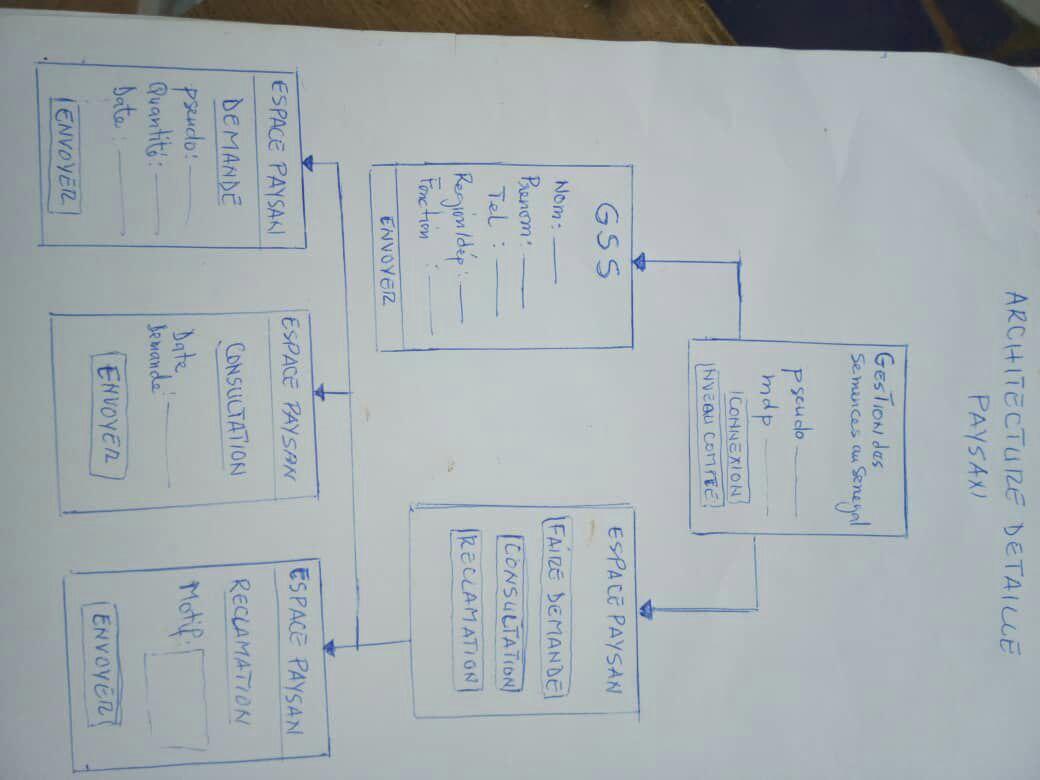 ARCHITECTURE DETAILLE
PAYSAN
GESTION des
semences au Senegal
pseudo
mdp
CONNEXION
NVEAU COMPTE
GSS
Nom:
Prenom:
Tel :
Region/dép:
Fonction :
ENVOYER
ESPACE PAYSAN
FAIRE DEMANDE
CONSULTATION
RECLAMATION
ESPACE PAYSAN
DEMANDE
pseudo:
Quantité:
Date:
ENVOYER
ESPACE PAYSAN
CONSULTATION
Date
demande:
ENVOYER
ESPACE PAYSAN
RECLAMATION
Motif:
ENVOYER